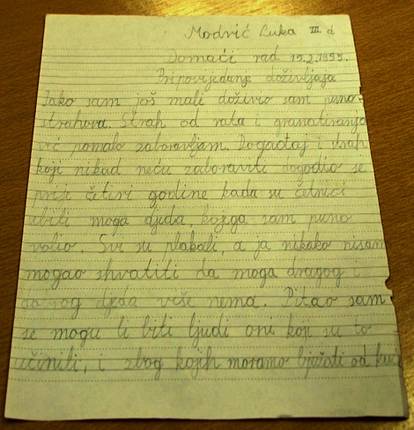 Modrić Luka III. d
Domaći rad 15.2.1995.
Pripovijedanje doživljaja
Iako sam još mali doživio sam puno
strahova. Strah od rata i granatiranja
već pomalo zaboravljam. Događaj i strah
koji nikad neću zaboraviti dogodio se
prije četiri godine kada su četnici
ubili moga djeda kojega sam puno
volio. Svi su plakali, a ja nikako nisam
mogao shvatiti da moga dragog i
djeda više nema. Pitao sam
se mogu li biti ljudi oni koji su to
učinili, i zbog kojih moramo bježati od kuće